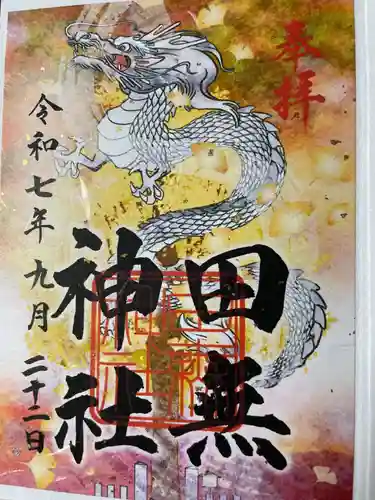 奉拝
田無
神社
令和七年九月二十二日